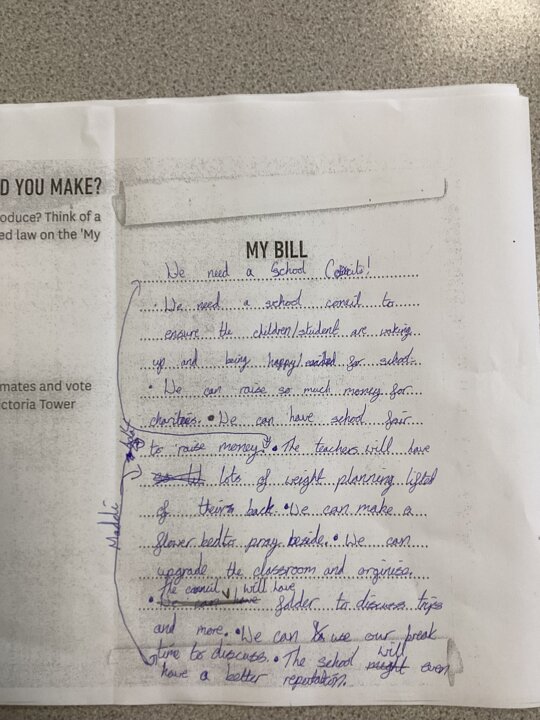 D YOU MAKE?
oduce? Think of a
ed law on the 'My
mates and vote
ctoria Tower
MY BILL
We need a School Concile!
• We need a school concil to
ensure the children/student are waking
up and being happy/excited for school.
• We can raise so much money for
charities. • We can have school fair
to raise money. • The teachers will have
lots of weight planning lifted
of theirs back. • We can make a
flower bed to pray beside. • We can
upgrade the classroom and orginise.
The concil will have
• We can have folder to discuss trips
and more. • We can use our break
time to discuss. • The school will
might even
have a better reputation.
Maddi